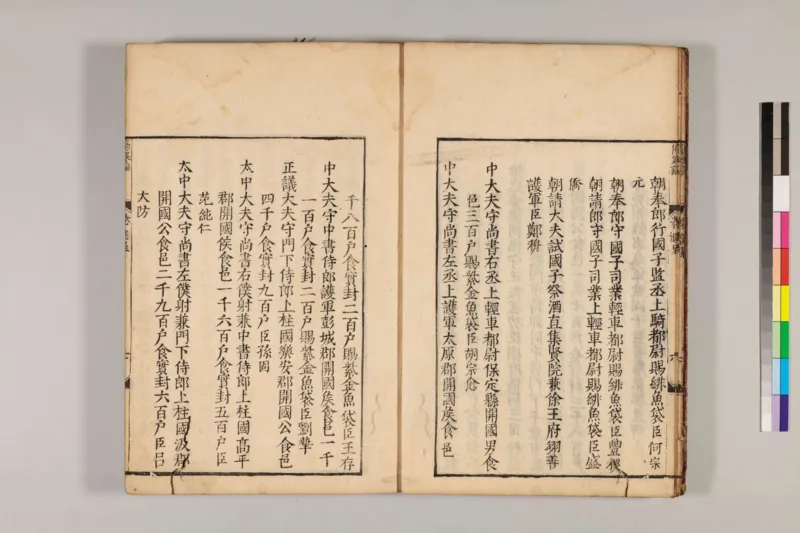 朝奉郎行國子監丞上騎都尉賜緋魚袋臣何宗
元
朝奉郎守國子司業輕車都尉賜緋魚袋臣豐稷
朝請郎守國子司業上輕車都尉賜緋魚袋臣盛
僑
朝請大夫試國子祭酒直集賢院兼徐王府翊善
護軍臣鄭穆
中大夫守尚書右丞上輕車都尉保定縣開國男食
邑三百户賜紫金魚袋臣胡宗愈
中大夫守尚書左丞上護軍太原郡開國矦食邑
千八百户食實封二百户賜紫金魚袋臣王存
中大夫守中書侍郎護軍彭城郡開國矦食邑一千
一百户食實封二百户賜紫金魚袋臣劉摯
正議大夫守門下侍郎上柱國樂安郡開國公食邑
四千户食實封九百户臣孫固
太中大夫守尚書右僕射兼中書侍郎上柱國高平
郡開國侯食邑一千六百户食實封五百户臣
范純仁
太中大夫守尚書左僕射兼門下侍郎上柱國汲郡
開國公食邑二千九百户食實封六百户臣吕
大防